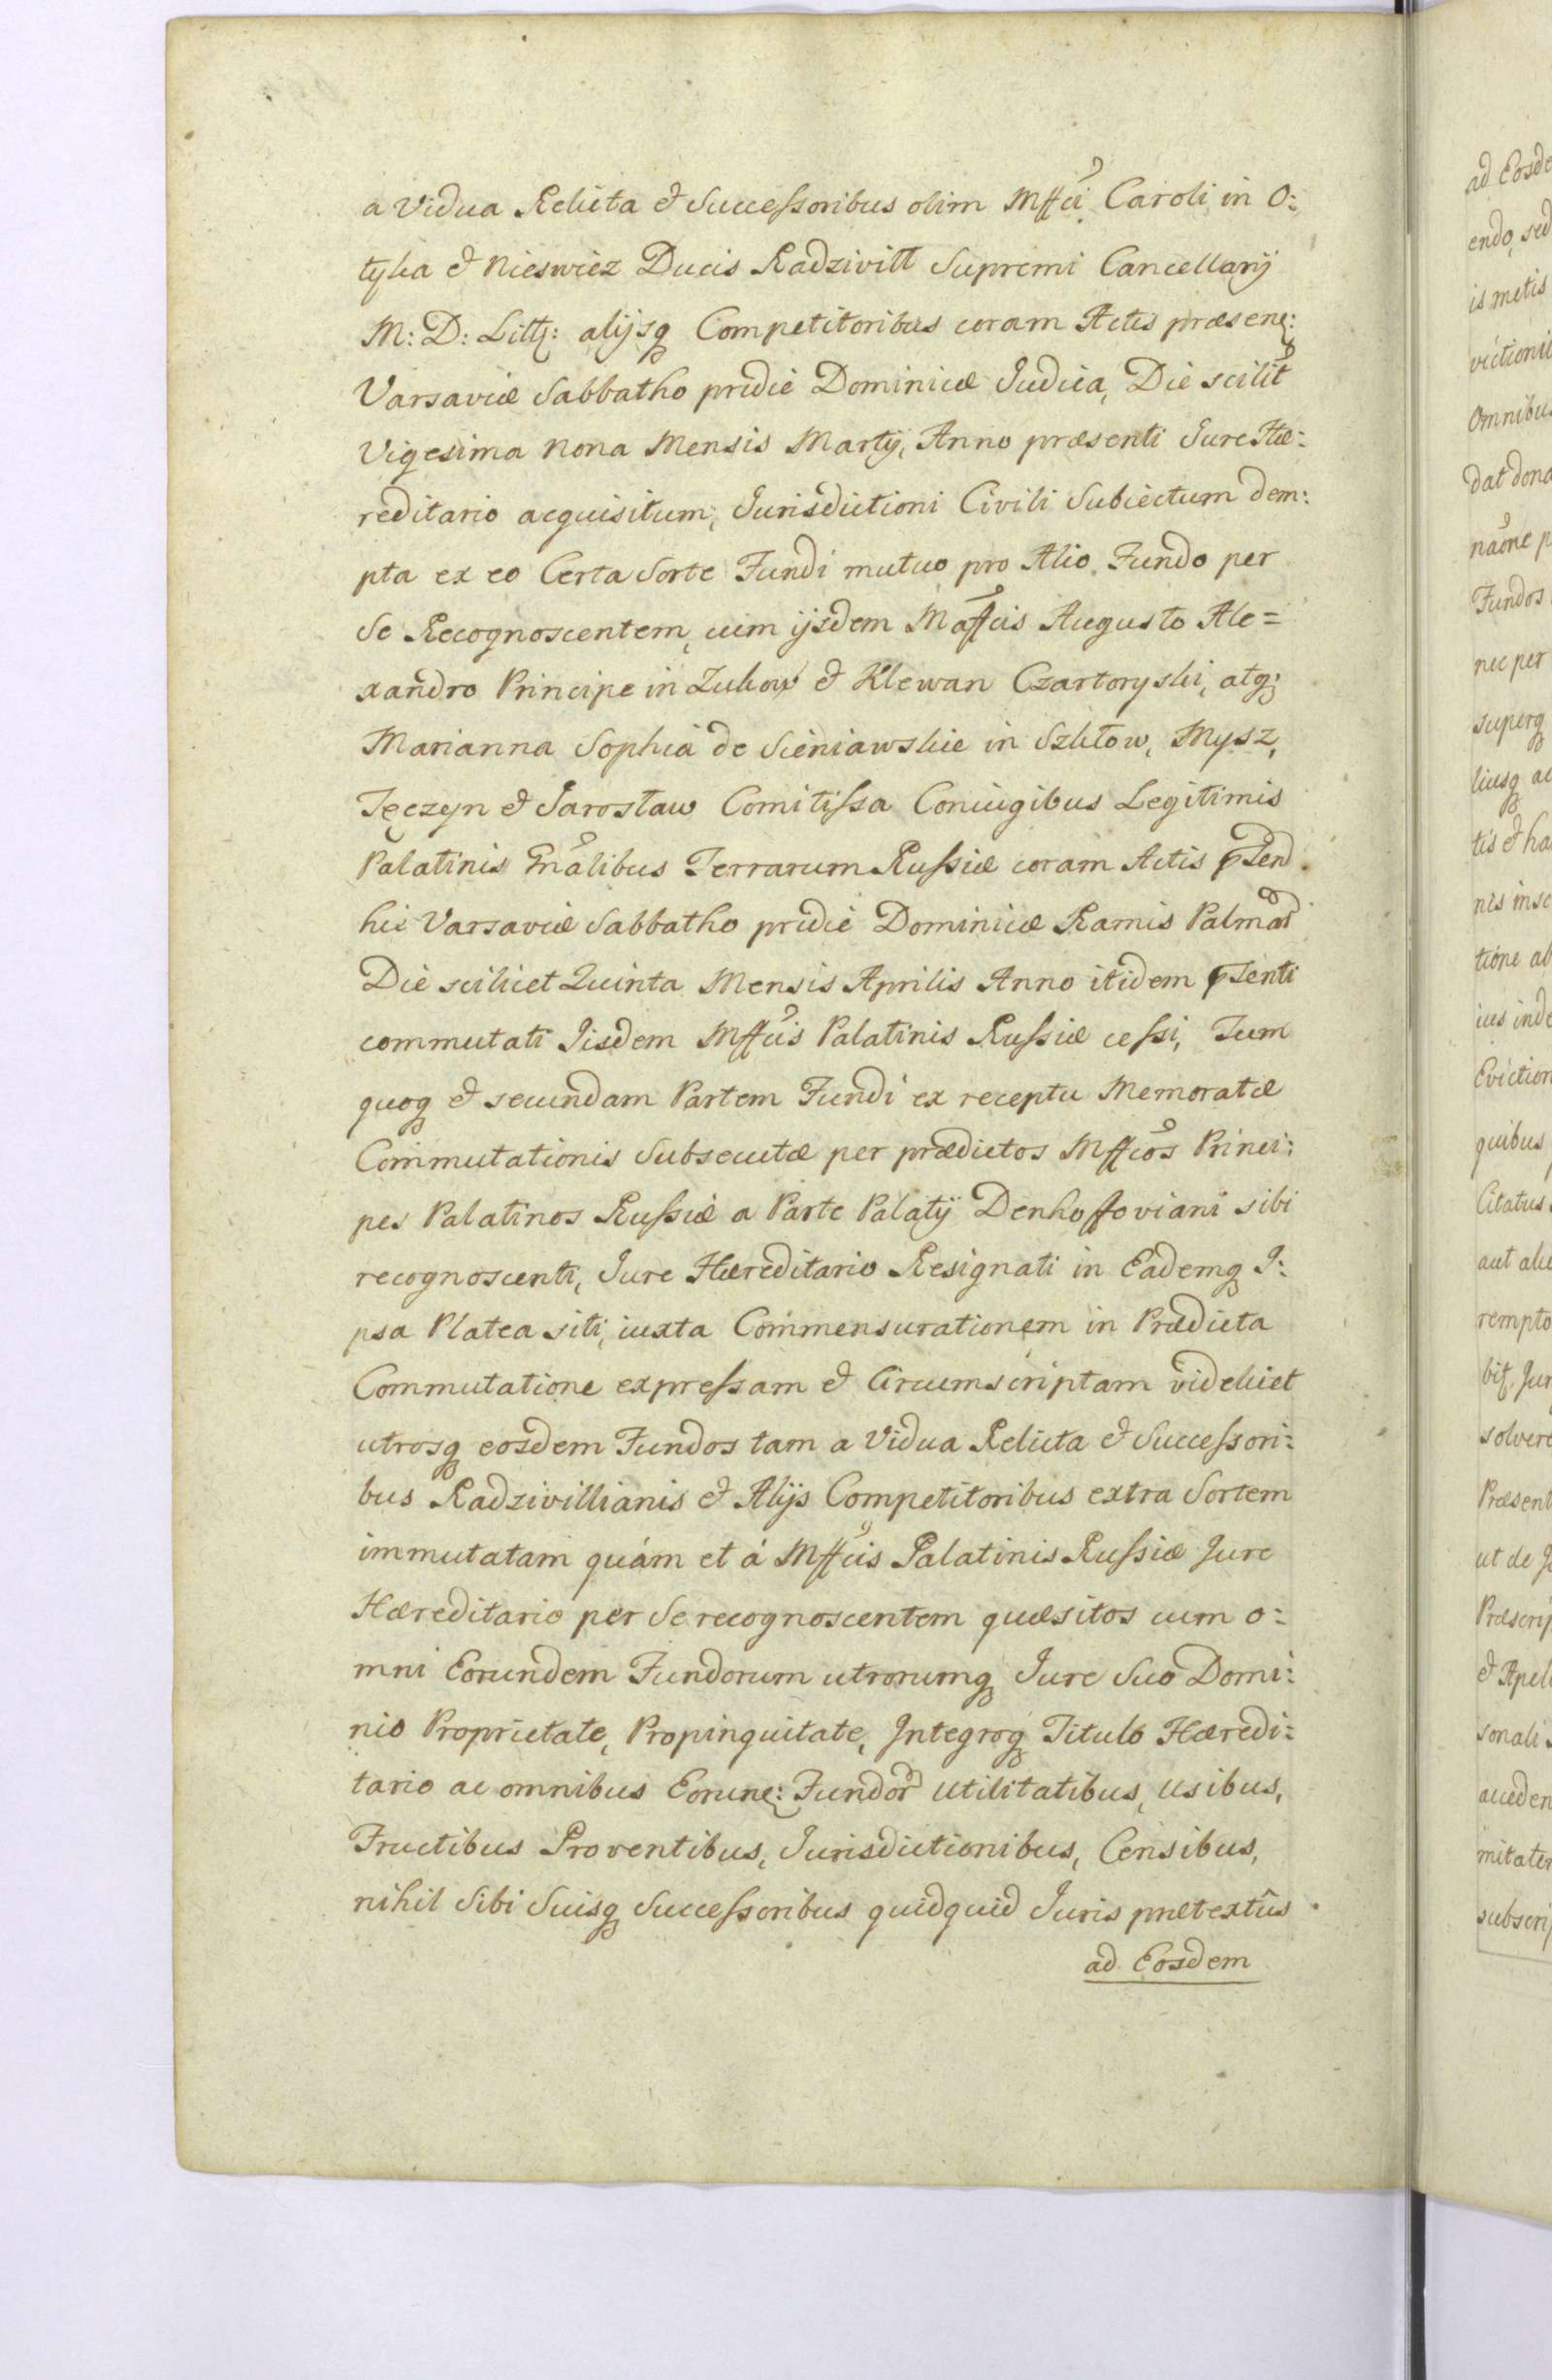 a Vidua Relicta & Successoribus olim Mffci Caroli in O:
tyka & Nieswiez Ducis Radziwiłł Supremi Cancellarij
M: D: Litt: alijsq Competitoribus coram Actis præsen:
Varsaviæ Sabbatho pridie Dominicæ Judica, Die scilit
Vigesima Nona Mensis Martij, Anno præsenti Jure Hæ:
reditario acquisitum, Jurisdictioni Civili Subiectum dem:
pta ex eo Certa Sorte Fundi mutuo pro Alio Fundo per
Se Recognoscentem, cum ijsdem Maffcis Augusto Ale=
xandro Principe in Zukow & Klewan Czartoryski, atq;
Marianna Sophia de Sieniawskie in Szkłow, Mysz,
Tęczyn & Jarosław Comitissa Coniugibus Legitimis
Palatinis Gnalibus Terrarum Russiæ coram Actis pten
his Varsaviæ Sabbatho pridie Dominicæ Ramis Palmar
Die scilicet Quinta Mensis Aprilis Anno itidem pſenti
commutati Jisdem Mffcis Palatinis Russiæ cessi, Tum
quoq & secundam Partem Fundi ex receptu Memoratæ
Commutationis Subsecutæ per prædictos Mffcos Princi:
pes Palatinos Russiæ a Parte Palatij Denhoffoviani sibi
recognoscenti, Jure Hæreditario Resignati in Eademq I:
psa Platea siti, iuxta Commensurationem in Prædicta
Commutatione expressam & Circumscriptam videlicet
utrosq eosdem Fundos tam a Vidua Relicta & Successori:
bus Radzivillianis & Alijs Competitoribus extra Sortem
immutatam quám et á Mffcis Palatinis Russiæ Jure
Hæreditario per Se recognoscentem quæsitos cum o:
mni Eorundem Fundorum utrorumq Jure Suo Domi:
nio Proprietate, Propinquitate, Integroq Titulo Hæredi:
tario ac omnibus Eorune: Fundor Utilitatibus, Usibus,
Fructibus Proventibus, Jurisdictionibus, Censibus,
nihil Sibi Suisq Successoribus quidquid Juris prætextûs
ad Eosdem